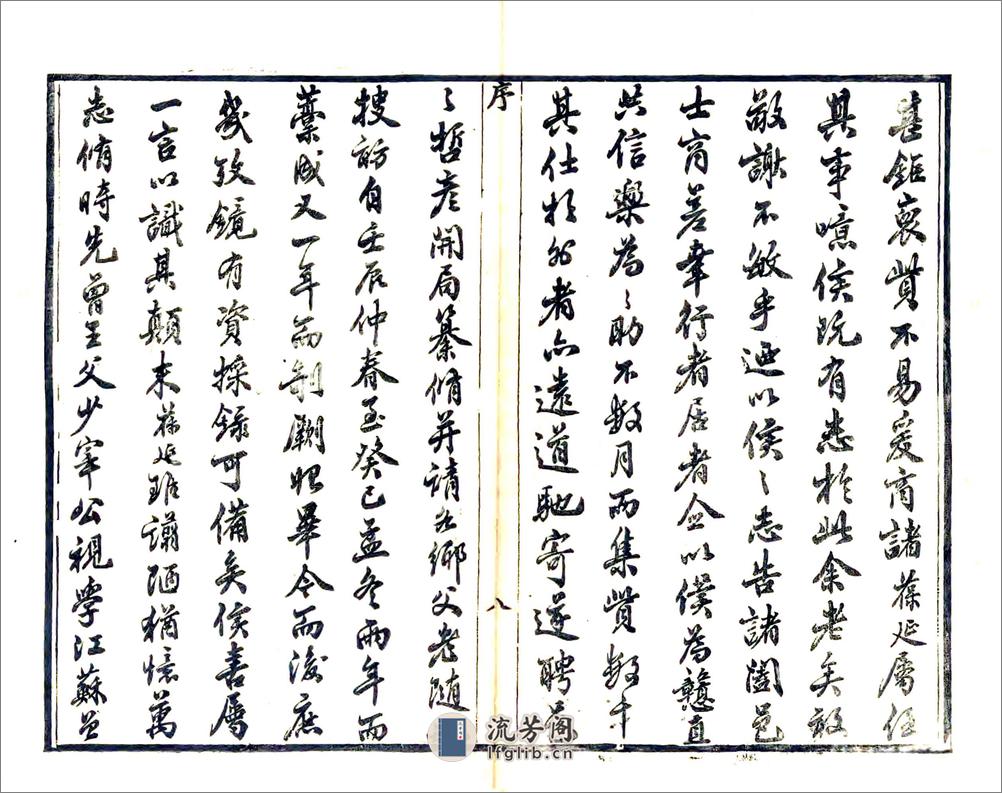 甚鉅裒貲不易爰商諸葆延屬任
其事噫侯既有志於此余老矣敢
敬謝不敏乎迺以侯〻志告諸闔邑
士商行者居者僉以僕為戇直
共信樂為〻助不數月而集貲數千
其仕於外者亦遠道馳寄遂聘
序 八
〻哲彥開局纂脩并請各鄉父老随
搜訪自壬辰仲春至癸巳孟冬兩年而
藁成又一年而剞劂畢今而後庶
幾攷鏡有資採錄可備矣侯喜屬
一言以識其顛末葆延譾陋猶憶萬
志脩時先曾王父少宰公視學江蘇
流芳阁
lfglib.cn